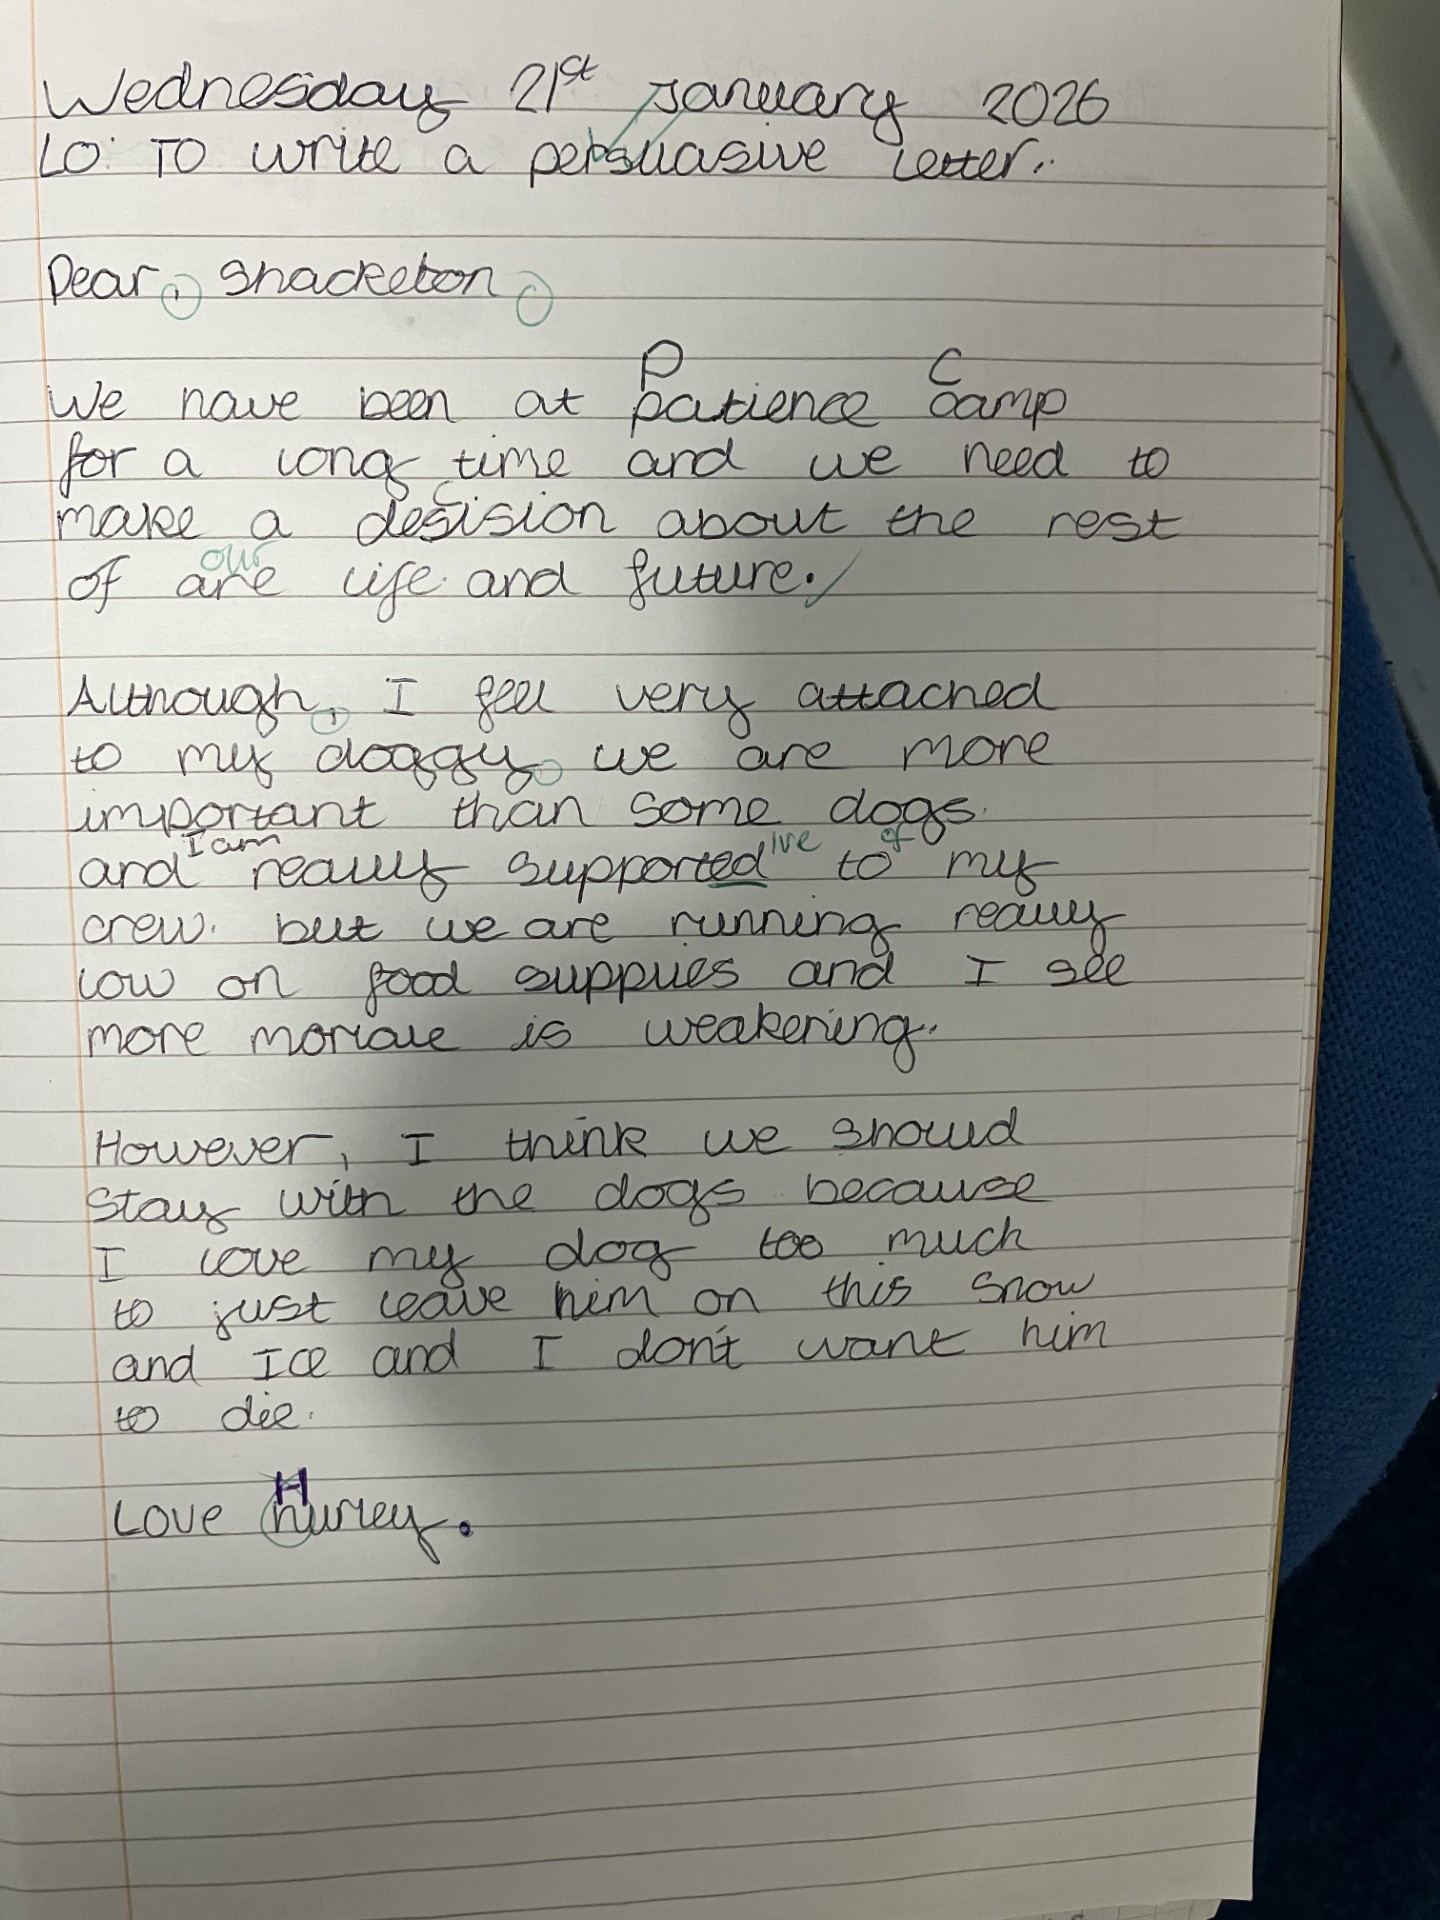 Wednesday 21st January 2026
LO: TO write a persuasive letter.
Dear, Shackelton
P C
We have been at patience camp
for a long time and we need to
c
make a desision about the rest
our
of are life and future.
Although, I feel very attached
to my doggy we are more
important than some dogs.
I am ive of
and really supported to my
crew. but we are running really
low on food supplies and I see
more morale is weakening.
However, I think we should
stay with the dogs because
I love my dog too much
to just leave him on this snow
and Ice and I don't want him
to die.
H
Love hurley.